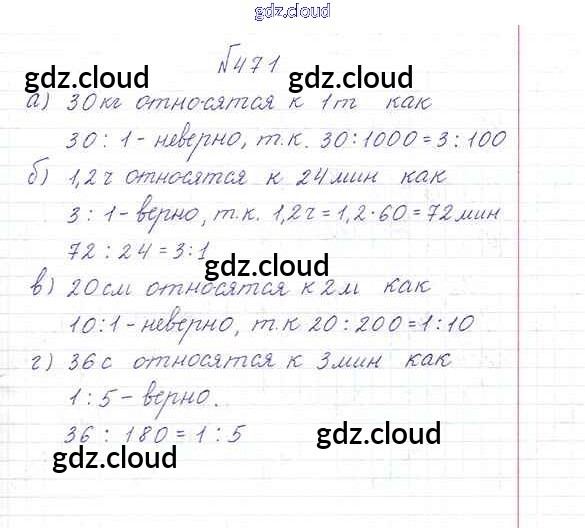 gdz.cloud
№471
gdz.cloud gdz.cloud
а) 30кг относятся к 1т как
30 : 1 - неверно, т.к. 30:1000 = 3 : 100
б) 1,2ч относятся к 24мин как
3 : 1 - верно, т.к. 1,2ч = 1,2·60 = 72мин
72 : 24 = 3:1
gdz.cloud
в) 20см относятся к 2м как
10:1 - неверно, т.к 20 : 200 = 1 : 10
г) 36с относятся к 3мин как
1 : 5 - верно.
36 : 180 = 1 : 5
gdz.cloud
gdz.cloud